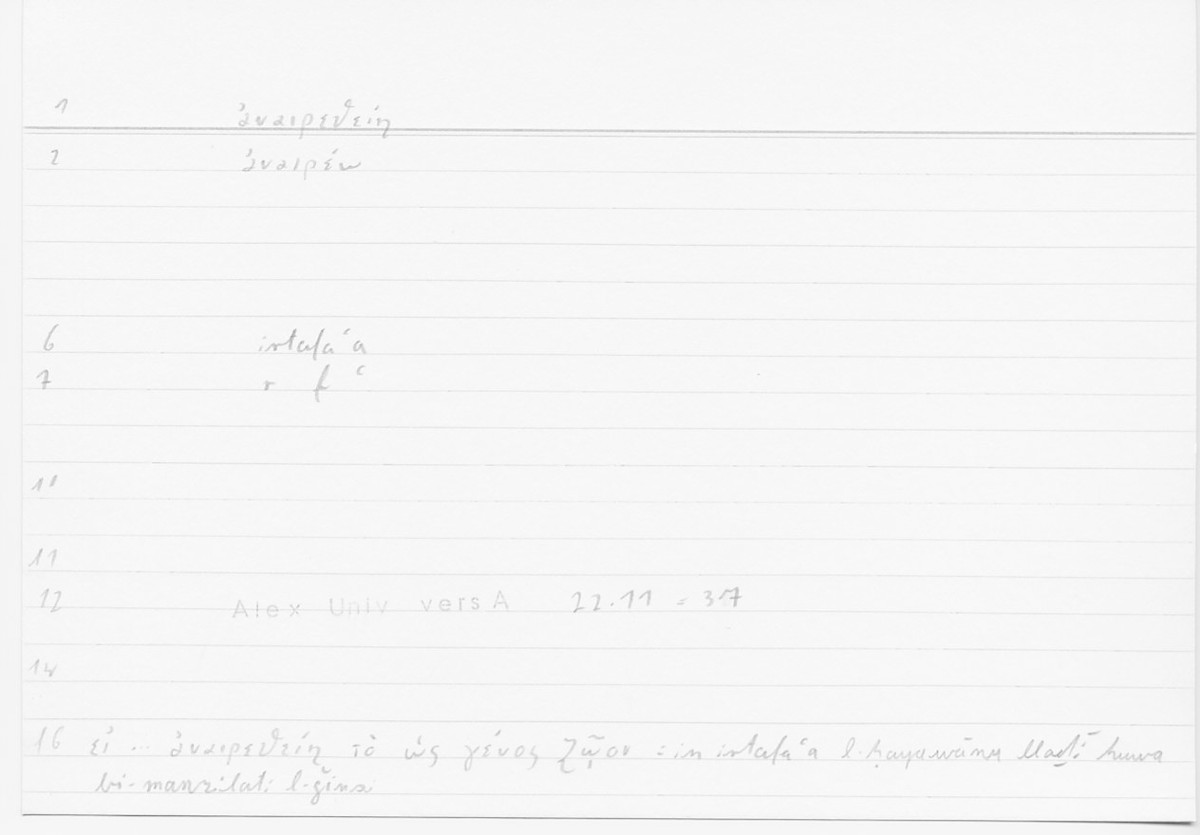 1 ἀναιρεθείη
2 ἀναιρέω
6 irtafaʿa
7 r f ʿ
10
11
12 Alex Univ vers A 22.11 = 37
14
16 εἰ ... ἀναιρεθείη τὸ ὡς γένος ζῷον = in irtafaʿa l-ḥayawānu lladī huwa
bi-manzilati l-ǧinsi